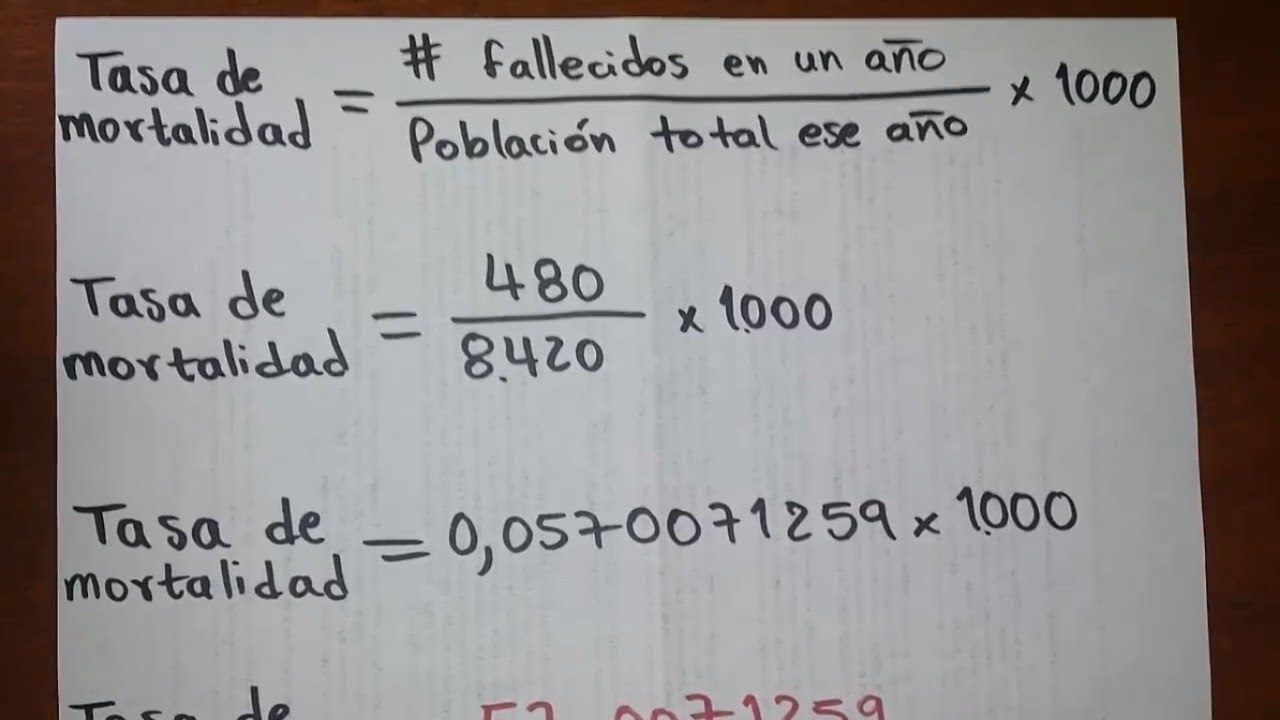 Tasa de mortalidad = # fallecidos en un año / Población total ese año x 1000
Tasa de mortalidad = 480 / 8.420 x 1.000
Tasa de mortalidad = 0,0570071259 x 1.000
Tasa de 57,0071259